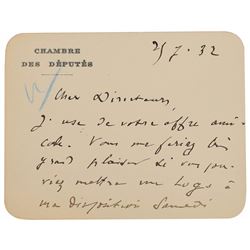 CHAMBRE
DES DÉPUTÉS
25 7. 32
Cher Directeur,
J use de votre offre ami-
cale. Vous me feriez un
grand plaisir si vous pour-
riez mettre une loge à
ma disposition Samedi